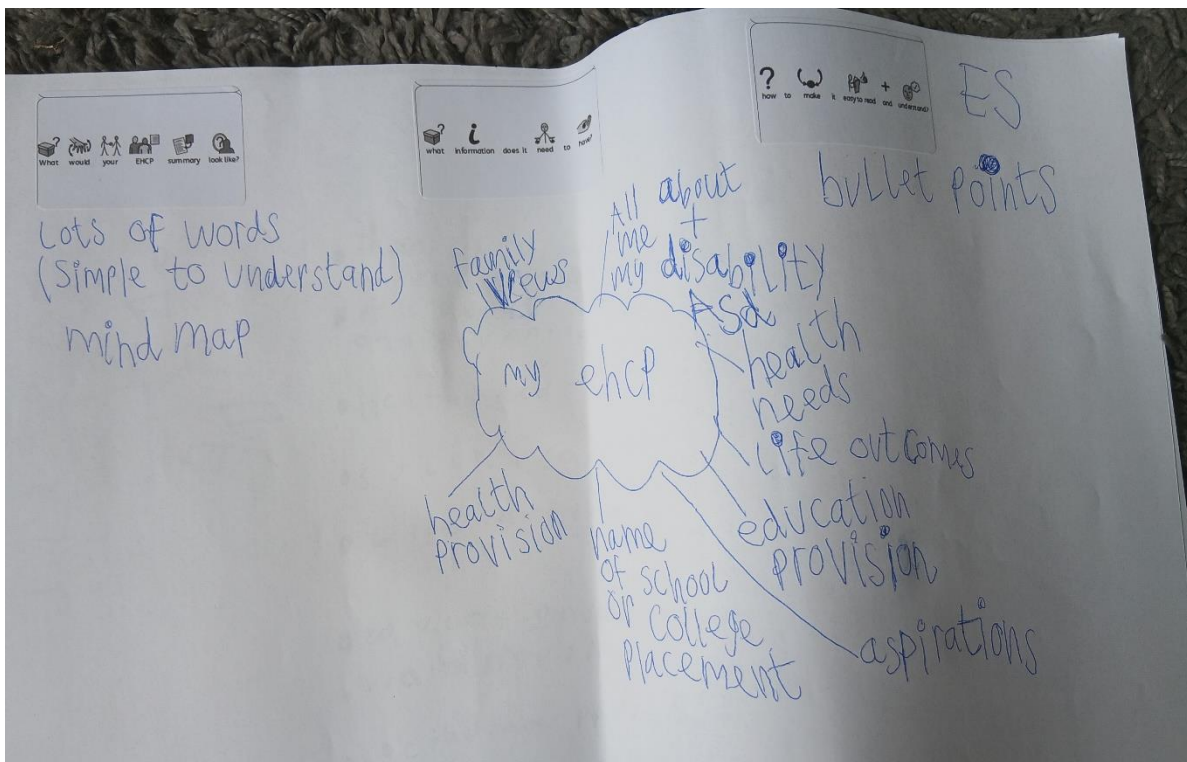 What would your EHCP summary look like?
Lots of words
(Simple to understand)
mind map
what information does it need to have?
family
views
All about
me +
my disability
ASd
my ehcp
health
needs
Life outcomes
education
provision
aspirations
name
of school
or college
placement
health
provision
how to make it easy to read and understand?
ES
bullet points